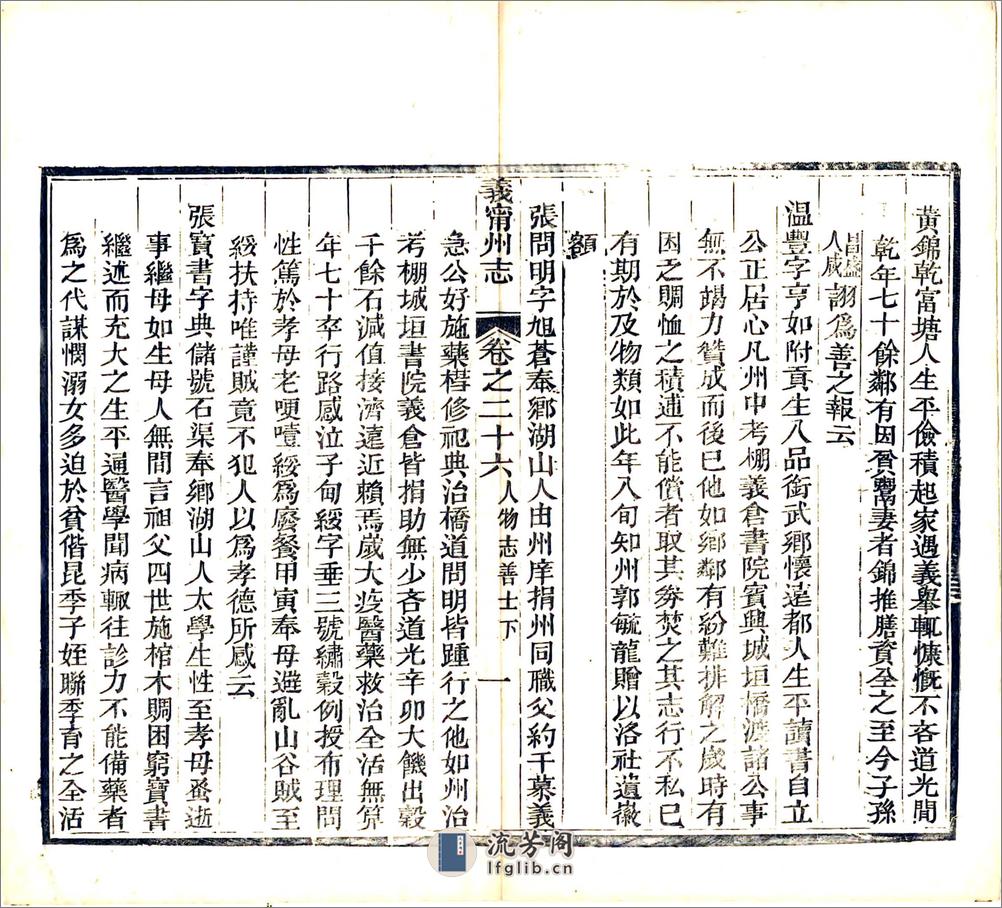 黃錦乾富塘人生平儉積起家遇義舉輒慷慨不吝道光間
乾年七十餘鄰有因貧鬻妻者錦推膳資全之至今子孫
昌盛人咸詡爲善之報云
溫豐字亨如附貢生八品銜武鄉懷遠都人生平讀書自立
公正居心凡州中考棚義倉書院賓興城垣橋渡諸公事
無不竭力贊成而後已他如鄉鄰有紛難排解之歲時有
困乏賙恤之積逋不能償者取其券焚之其志行不私已
有期於及物類如此年八旬知州郭毓龍贈以洛社遺徽
額
張問明字旭蒼奉鄉湖山人由州庠捐州同職父約干慕義
急公好施藥槥修祀典治橋道問明皆踵行之他如州治
考棚城垣書院義倉皆捐助無少吝道光辛卯大饑出穀
千餘石減值接濟遠近賴焉歲大疫醫藥救治全活無算
年七十卒行路感泣子甸綏字垂三號繡穀例授布理問
性篤於孝母老哽噎綏爲廢餐甲寅奉母避亂山谷賊至
綏扶持唯謹賊竟不犯人以爲孝德所感云
張寶書字典儲號石渠奉鄉湖山人太學生性至孝母蚤逝
事繼母如生母人無間言祖父四世施棺木賙困窮寶書
繼述而充大之生平通醫學聞病輒往診力不能備藥者
爲之代謀憫溺女多迫於貧偕昆季子姪聯季育之全活
義甯州志
卷之二十六
人物志善士下
一
流芳阁
lfglib.cn